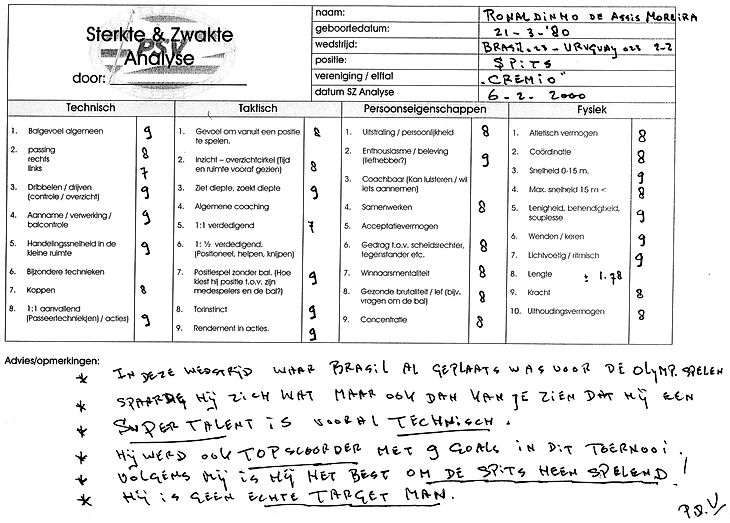 Sterkte & Zwakte
PSV
Analyse
door:
naam: RONALDINHO DE ASSIS MOREIRA
geboortedatum: 21-3-'80
wedstrijd: BRASIL O23 - URUGUAY O23 2-2
positie: SPITS
vereniging / elftal "CREMIO"
datum SZ Analyse 6-2-2000
Technisch
1. Balgevoel algemeen 9
2. passing
rechts 8
links 7
3. Dribbelen / drijven 9
(controle / overzicht)
4. Aanname / verwerking / 9
balcontrole
5. Handelingssnelheid in de 9
kleine ruimte
6. Bijzondere technieken
7. Koppen 8
8. 1:1 aanvallend 9
(Passeertechniek(en) / acties)
Taktisch
1. Gevoel om vanuit een positie 8
te spelen.
2. Inzicht - overzichtcirkel (Tijd 8
en ruimte vooraf gezien)
3. Ziet diepte, zoekt diepte 9
4. Algemene coaching
5. 1:1 verdedigend 7
6. 1: ½ verdedigend.
(Positioneel, helpen, knijpen)
7. Positiespel zonder bal. (Hoe 9
kiest hij positie t.o.v. zijn
medespelers en de bal?)
8. Torinstinct 9
9. Rendement in acties. 9
Persoonseigenschappen
1. Uitstraling / persoonlijkheid 8
2. Enthousiasme / beleving 9
(liefhebber?)
3. Coachbaar (Kan luisteren / wil
iets aannemen)
4. Samenwerken 8
5. Acceptatievermogen
6. Gedrag t.o.v. scheidsrechter, 8
tegenstander etc.
7. Winnaarsmentaliteit 8
8. Gezonde brutaliteit / lef (bijv. 8
vragen om de bal)
9. Concentratie 8
Fysiek
1. Atletisch vermogen 8
2. Coördinatie 8
3. Snelheid 0-15 m. 9
4. Max. snelheid 15 m < 8
5. Lenigheid, behendigheid, 9
souplesse
6. Wenden / keren 9
7. Lichtvoetig / ritmisch 9
8. Lengte ± 1.78
9. Kracht 8
10. Uithoudingsvermogen 8
Advies/opmerkingen:
* IN DEZE WEDSTRIJD WAAR BRASIL AL GEPLAATS WAS VOOR DE OLYMP. SPELEN
* SPAARDE HIJ ZICH WAT MAAR OOK DAN KAN JE ZIEN DAT HIJ EEN
* SUPER TALENT IS VOORAL TECHNISCH.
* HIJ WERD OOK TOPSCOORDER MET 9 GOALS IN DIT TOERNOOI.
* VOLGENS MIJ IS HIJ HET BEST OM DE SPITS HEEN SPELEND!
* HIJ IS GEEN ECHTE TARGET MAN.